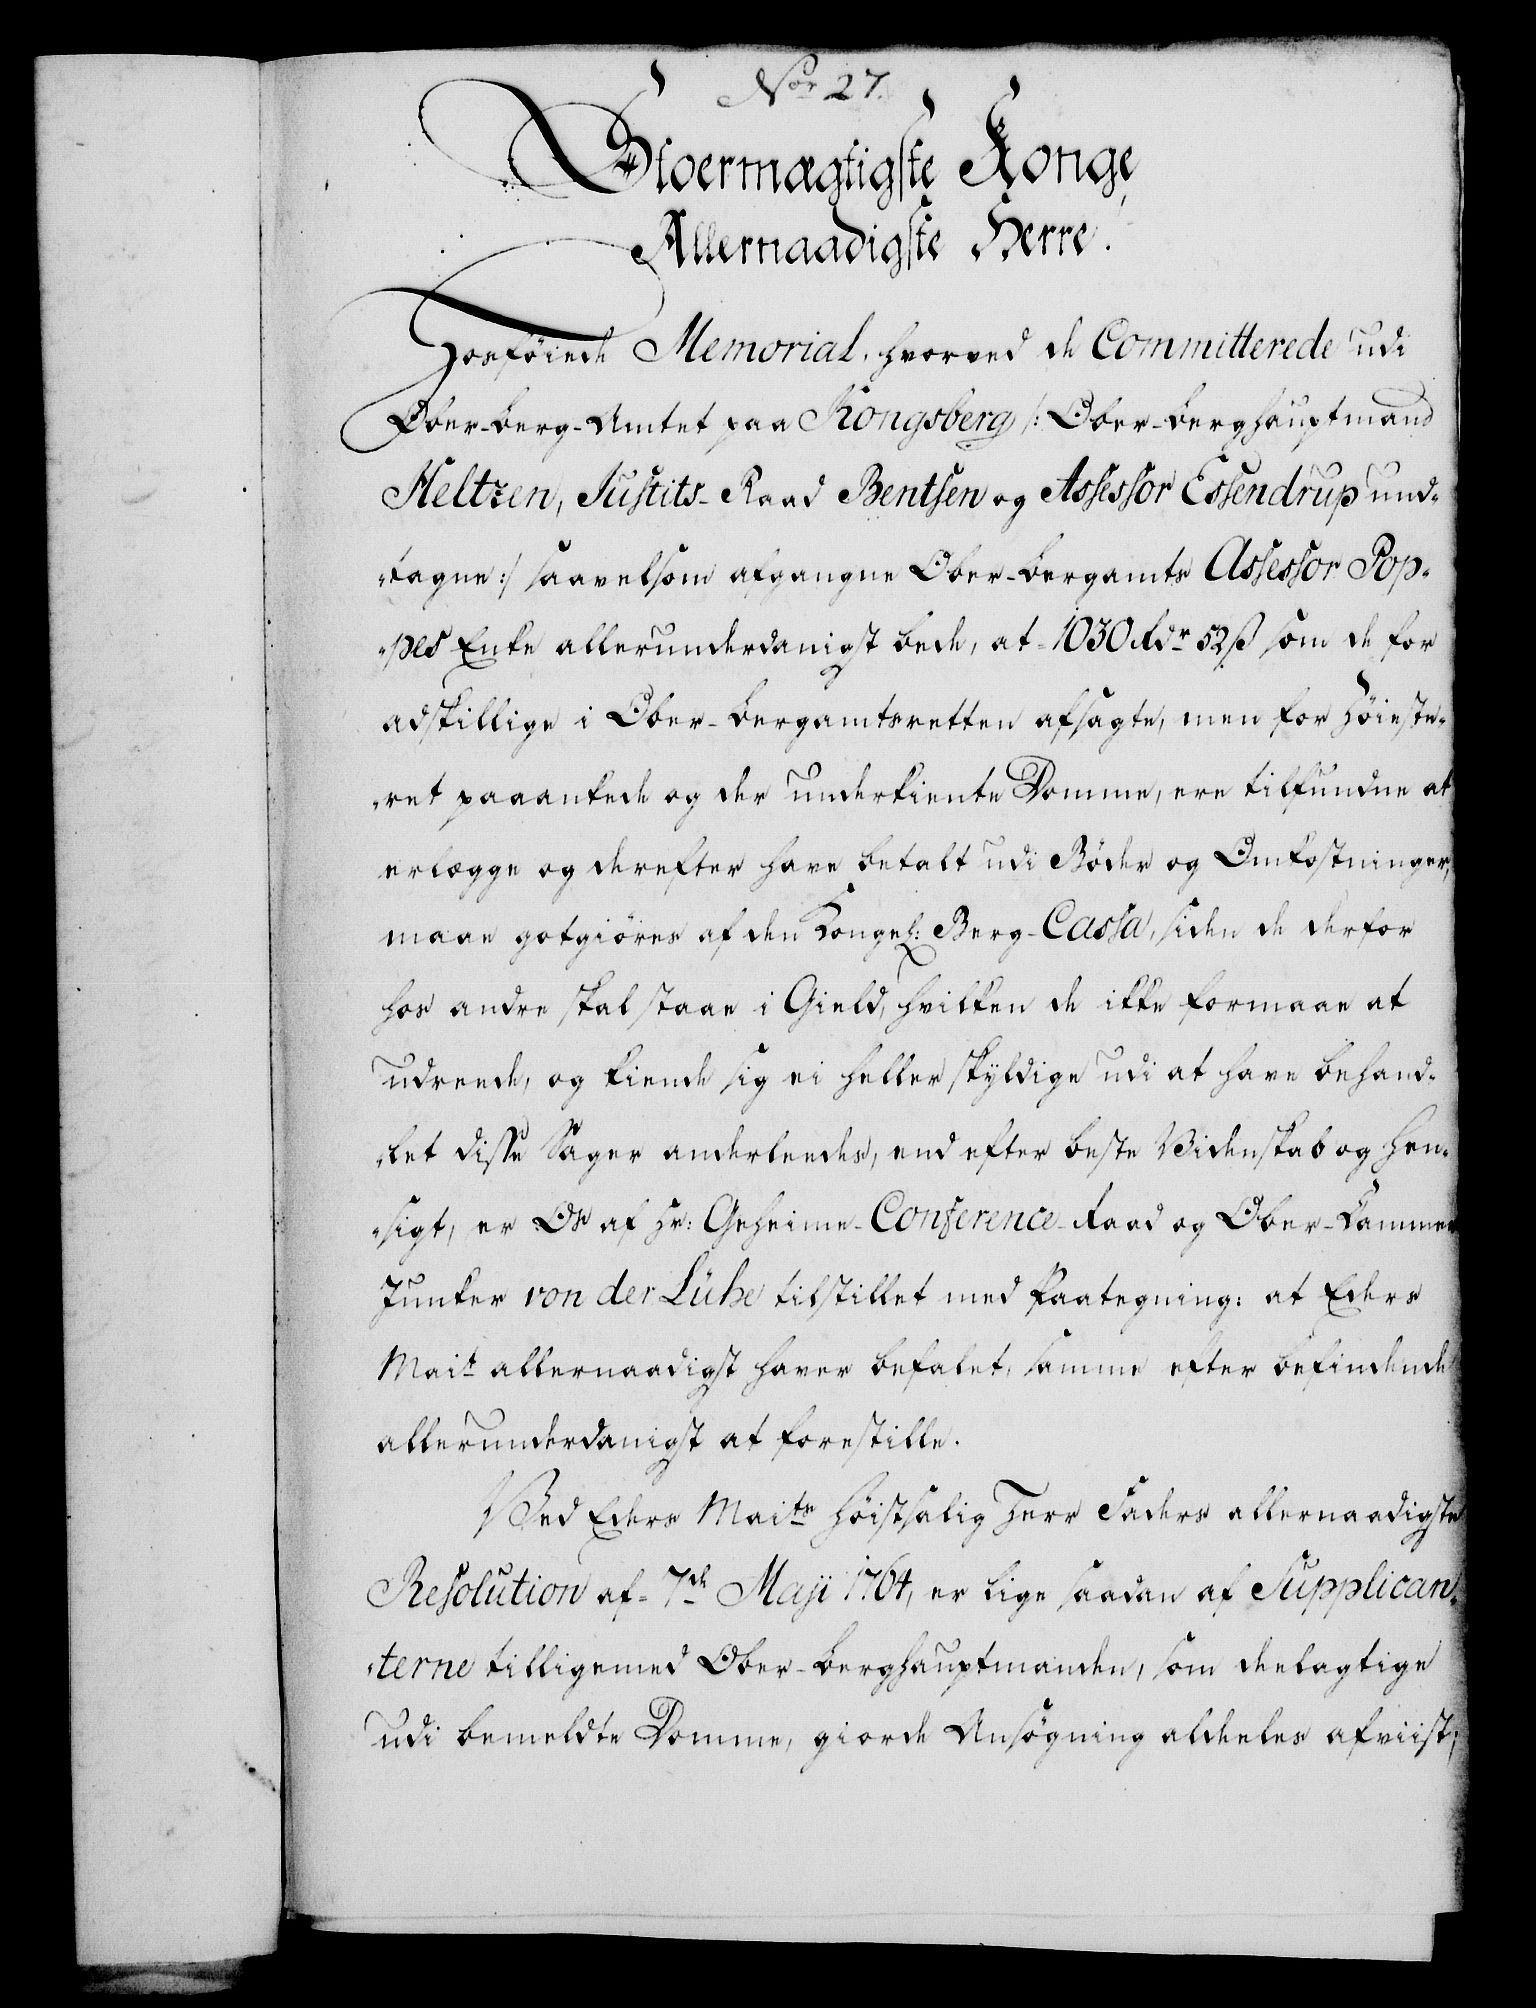 Nor 27.
Stoermægtigste Konge,
Allernaadigste Herre.
Hosføiede Memorial, hvorved de Committerede udi
Ober-Berg-Amtet paa Kongsberg /: Ober-Berghauptmand
Heltzen, Justits-Raad Bentsen og Assessor Essendrup und-
-tagne :/ saavelsom afgangne Ober-Bergamts Assessor Pop-
-pes Enke allerunderdanigst bede, at 1030 Rdr 52 ß som de for
adskillige i Ober-Bergamtsretten afsagte, men for Høieste-
-ret paaankede og der underkiente Domme, ere tilfundne at
erlægge og derefter have betalt udi Bøder og Omkostninger,
maae gotgiøres af den Kongel: Berg-Cassa, siden de derfor
hos andre skal staae i Gield, hvilken de ikke formaae at
udreede, og kiende sig ei heller skyldige udi at have behand-
-let disse Sager anderleedes, end efter beste Videnskab og Hen-
-sigt, er Os af Hr: Geheime-Conference-Raad og Ober-Kammer
Junker von der Lühe tilstillet med Paategning: at Eders
Mait allernaadigst haver befalet, samme efter befindende
allerunderdanigst at forestille.
Ved Eders Maits Høistsalig Herr Faders allernaadigste
Resolution af 7de Maji 1764, er lige saadan af Supplican-
-terne tilligemed Ober-Berghauptmanden, som deelagtige
udi bemeldte Domme, giorde Ansøgning aldeeles afviist;